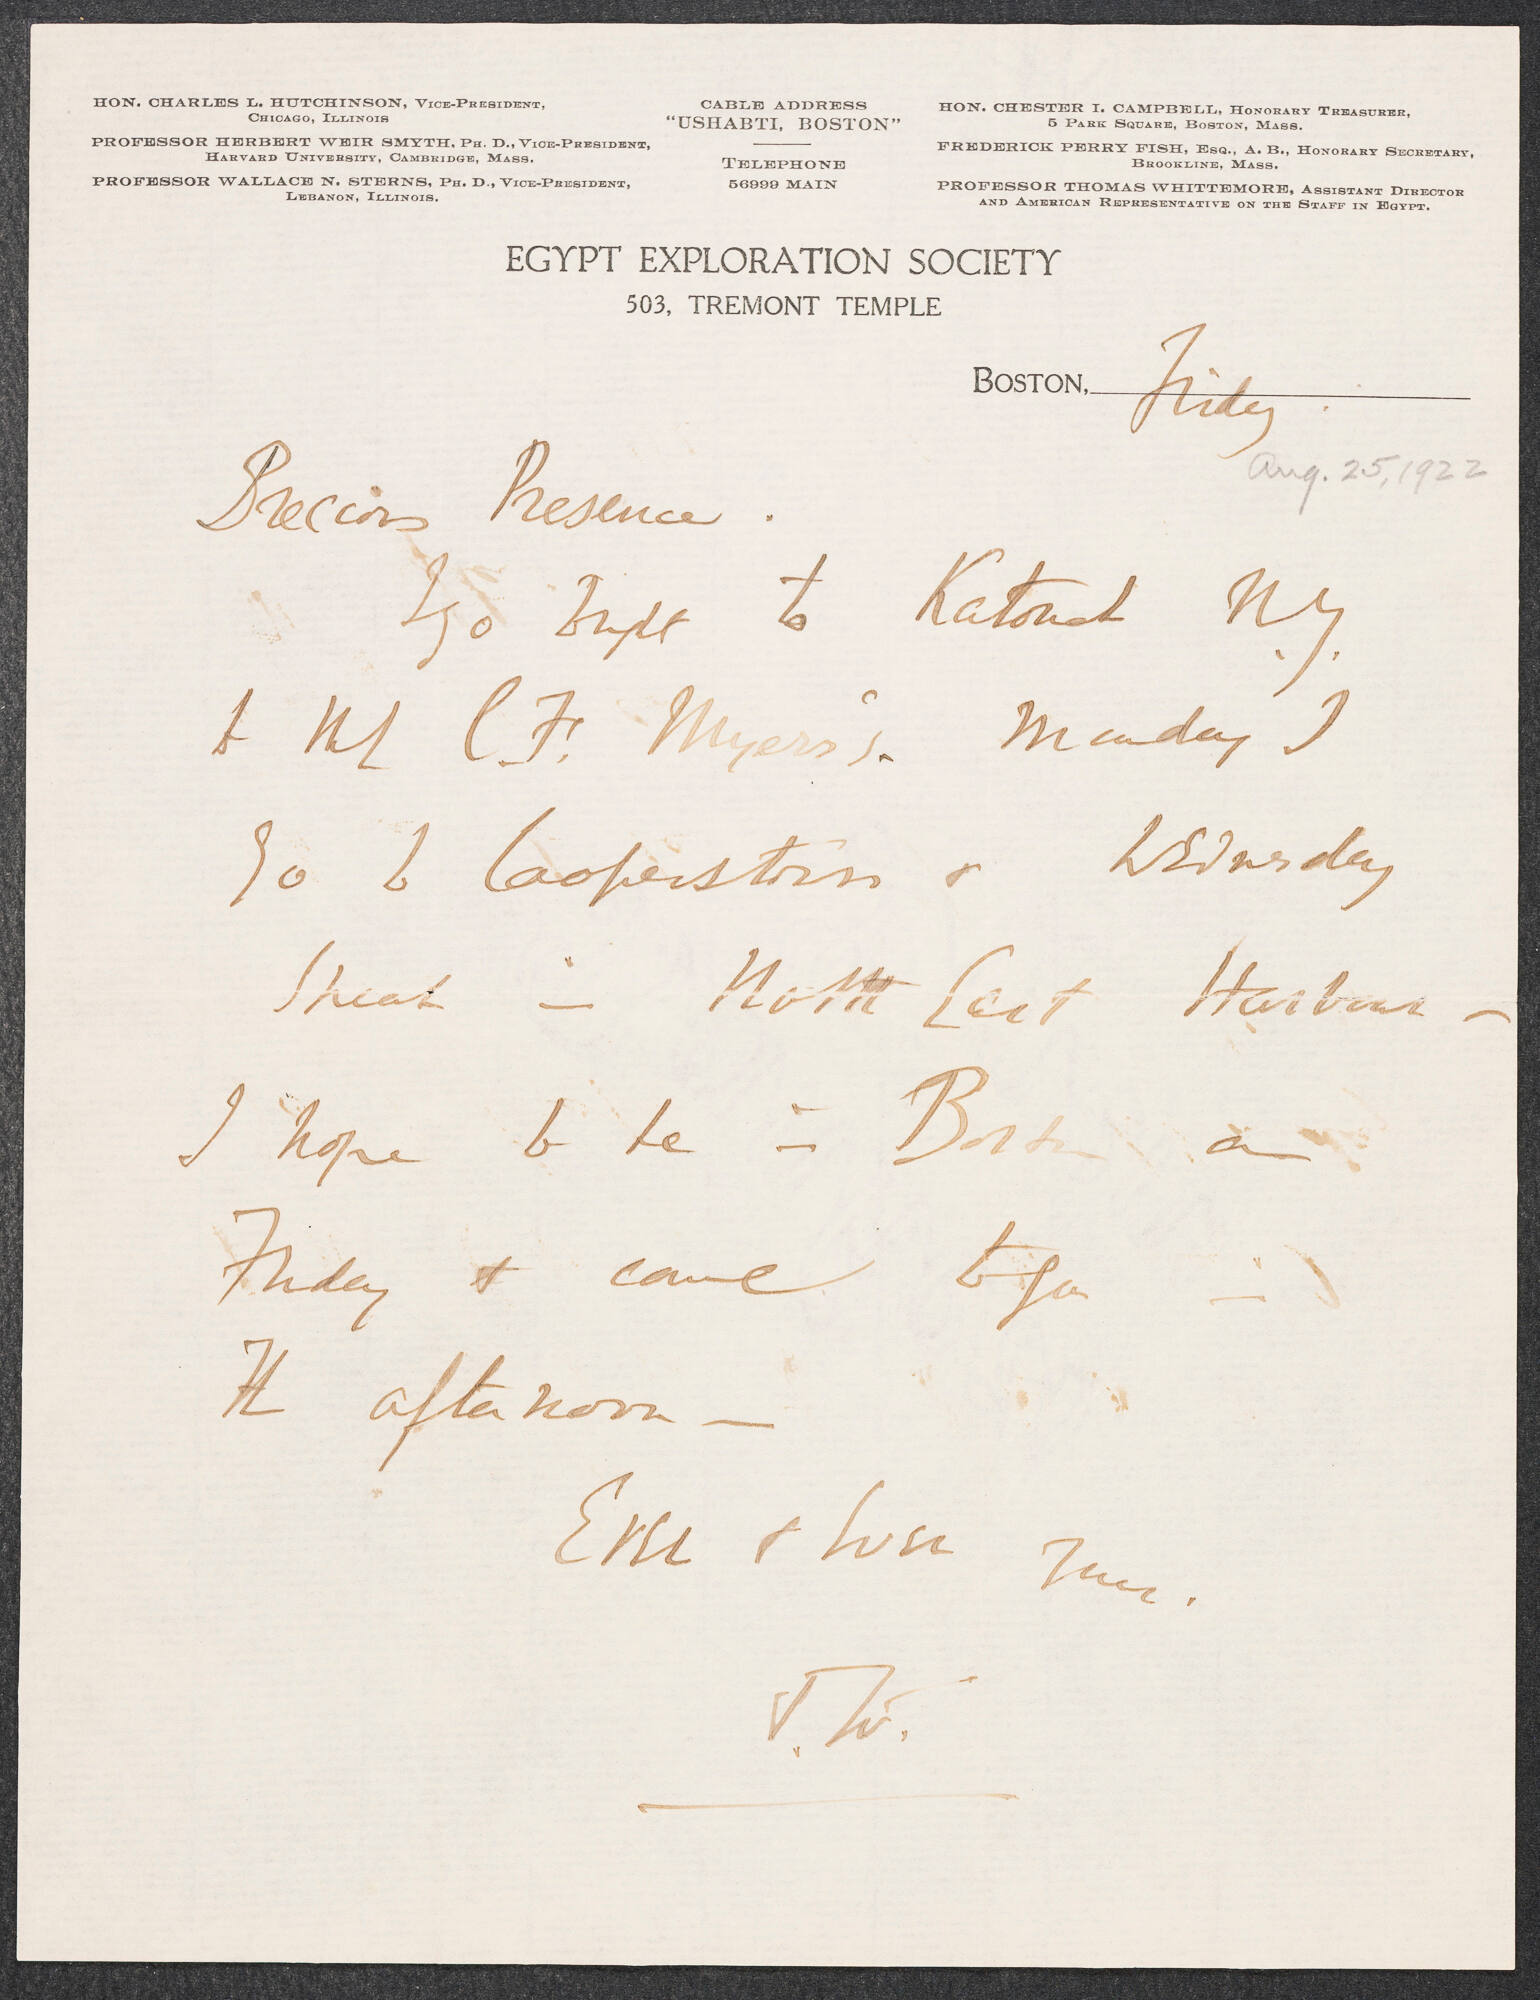 HON. CHARLES L. HUTCHINSON, VICE-PRESIDENT,
CHICAGO, ILLINOIS
PROFESSOR HERBERT WEIR SMYTH, PH. D., VICE-PRESIDENT,
HARVARD UNIVERSITY, CAMBRIDGE, MASS.
PROFESSOR WALLACE N. STERNS, PH. D., VICE-PRESIDENT,
LEBANON, ILLINOIS.
CABLE ADDRESS
"USHABTI, BOSTON"
TELEPHONE
56999 MAIN
HON. CHESTER I. CAMPBELL, HONORARY TREASURER,
5 PARK SQUARE, BOSTON, MASS.
FREDERICK PERRY FISH, ESQ., A. B., HONORARY SECRETARY,
BROOKLINE, MASS.
PROFESSOR THOMAS WHITTEMORE, ASSISTANT DIRECTOR
AND AMERICAN REPRESENTATIVE ON THE STAFF IN EGYPT.
EGYPT EXPLORATION SOCIETY
503, TREMONT TEMPLE
BOSTON, Friday.
Aug. 25, 1922
Precious Presence.
I go to Katonah N.Y.
to C. F. Myers's. Monday I
go to Cooperstown & Wednesday
speak in North East Harbour -
I hope to be in Boston on
Friday & come to you in
the afternoon -
Ever & ever
T.W.